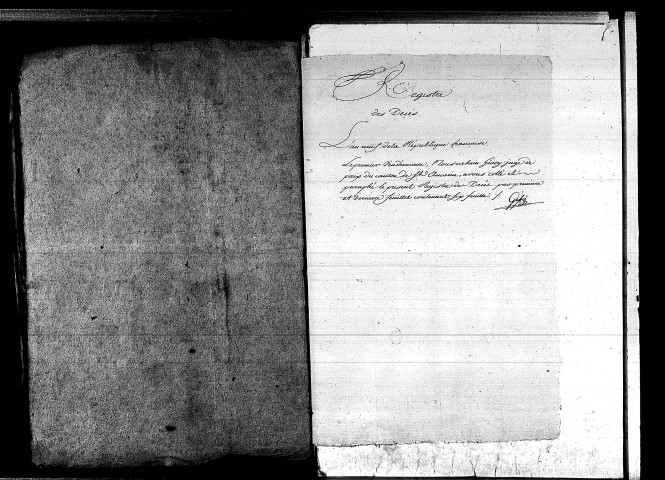 Registre
des Décés
L'an neuf de la République française
Le premier Vendemiaire, Nous juge de
paix du canton de St. avons cotté et
paraphé le present Registre de Décés par premier
et dernier feuillet contenant six feuillets